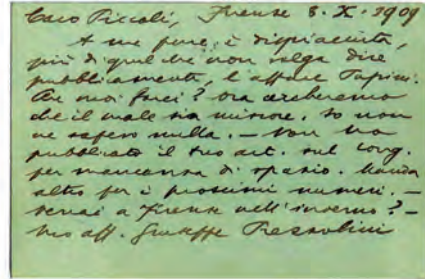 Caro Piccoli, Firenze 8. X. 1909
A me pure, è dispiaciuta,
più di quel che non valga dire
pubblicamente, l'affare Papini.
che il male sia minore. Io non
ne sapevo nulla. — Non ho
pubblicato il tuo art. sul cong.
per mancanza di spazio. Manda
altro per i prossimi numeri. —
Verrai a Firenze nell'inverno? —
tuo aff. Giuseppe Prezzolini